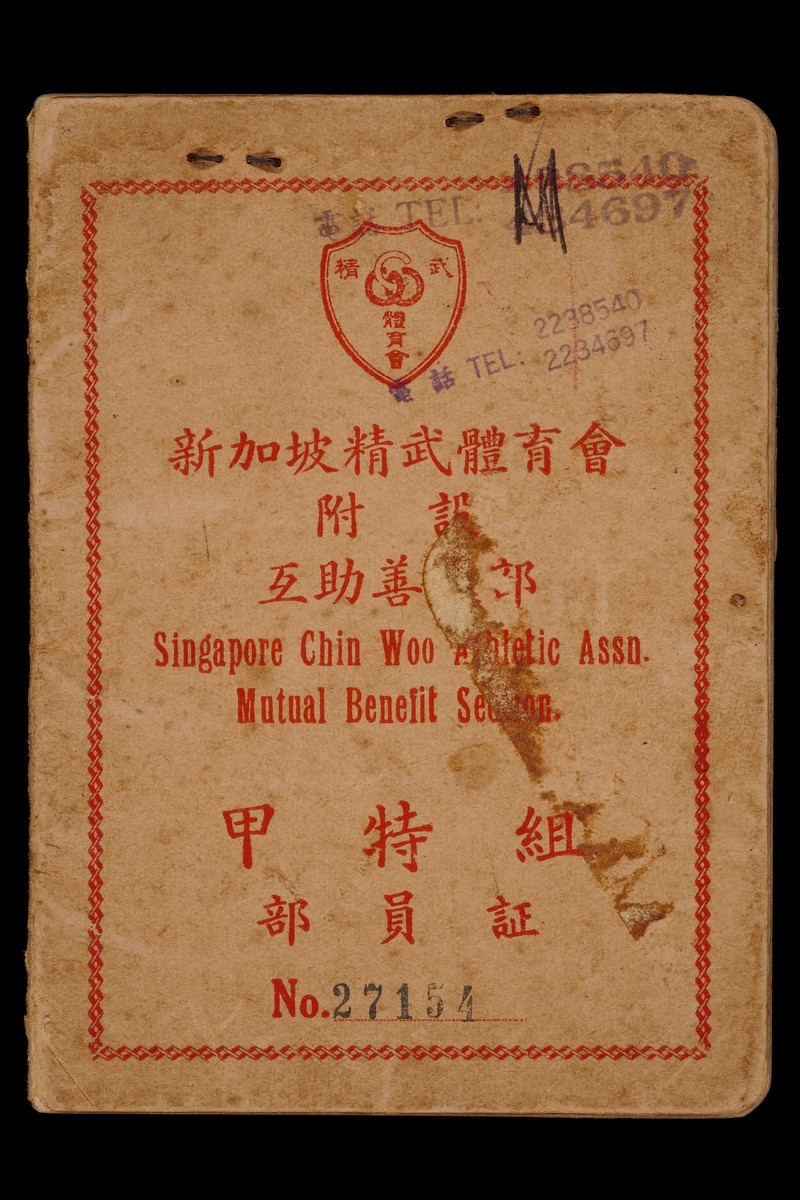 電話 TEL:
4697
精 武
體
育
會
2238540
電話 TEL: 2234697
新加坡精武體育會
附 設
互助善 部
Singapore Chin Woo Athletic Assn.
Mutual Benefit Section.
甲 特 組
部 員 証
No. 27154